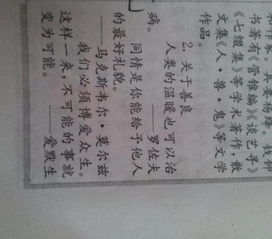 书著有《管锥编》《谈艺录》
《七缀集》等学术著作，散
文集《人·兽·鬼》等文学
作品。
2. 关于善良
人类的温暖也可以治
病。 ——罗佐夫
同情是你能给予他人
的最好礼貌。
——马克斯韦尔·莫尔兹
我们必须博爱众生。
这样一来，不可能的事就
变为可能。 ——爱默生